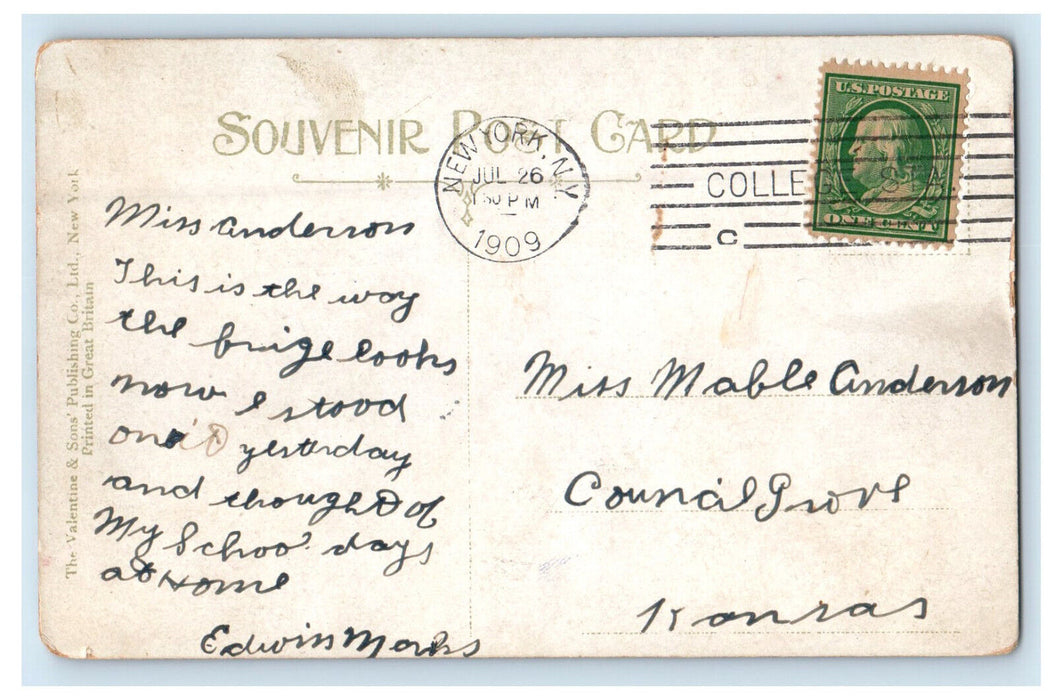 SOUVENIR POST CARD
NEW YORK, N.Y.
JUL 26
1909
COLLEGE STA.
C
U.S. POSTAGE
ONE CENT
The Valentine & Sons' Publishing Co., Ltd., New York
Printed in Great Britain
Miss Anderson
This is the way
the brige looks
now I stood
on it yesterday
and thought of
My School days
at Home
Edwin Marks
Miss Mable Anderson
Council Grove
Kansas